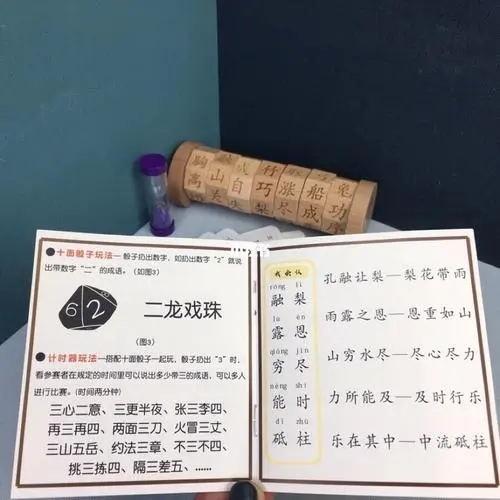 ●十面骰子玩法—骰子扔出数字，如扔出数字“2”就说
出带数字“二”的成语。（如图3）
6 2
二龙戏珠
（图3）
●计时器玩法—搭配十面骰子一起玩，骰子扔出“3”时，
看参赛者在规定的时间里可以说出多少带三的成语，可以多人
进行比赛。(时间两分钟)
三心二意、三更半夜、张三李四、
再三再四、两面三刀、火冒三丈、
三山五岳、约法三章、不三不四、
挑三拣四、隔三差五、......
我会认
róng lí
融 梨
lù ēn
露 恩
qióng jìn
穷 尽
néng shí
能 时
dǐ zhù
砥 柱
孔融让梨—梨花带雨
雨露之恩—恩重如山
山穷水尽—尽心尽力
力所能及—及时行乐
乐在其中—中流砥柱
行
离 山 自 巧 涨 船 兔
梨 尽 成 功